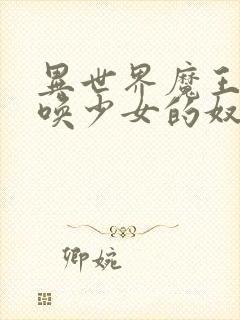 異世界魔王
喚少女的奴
卿婉